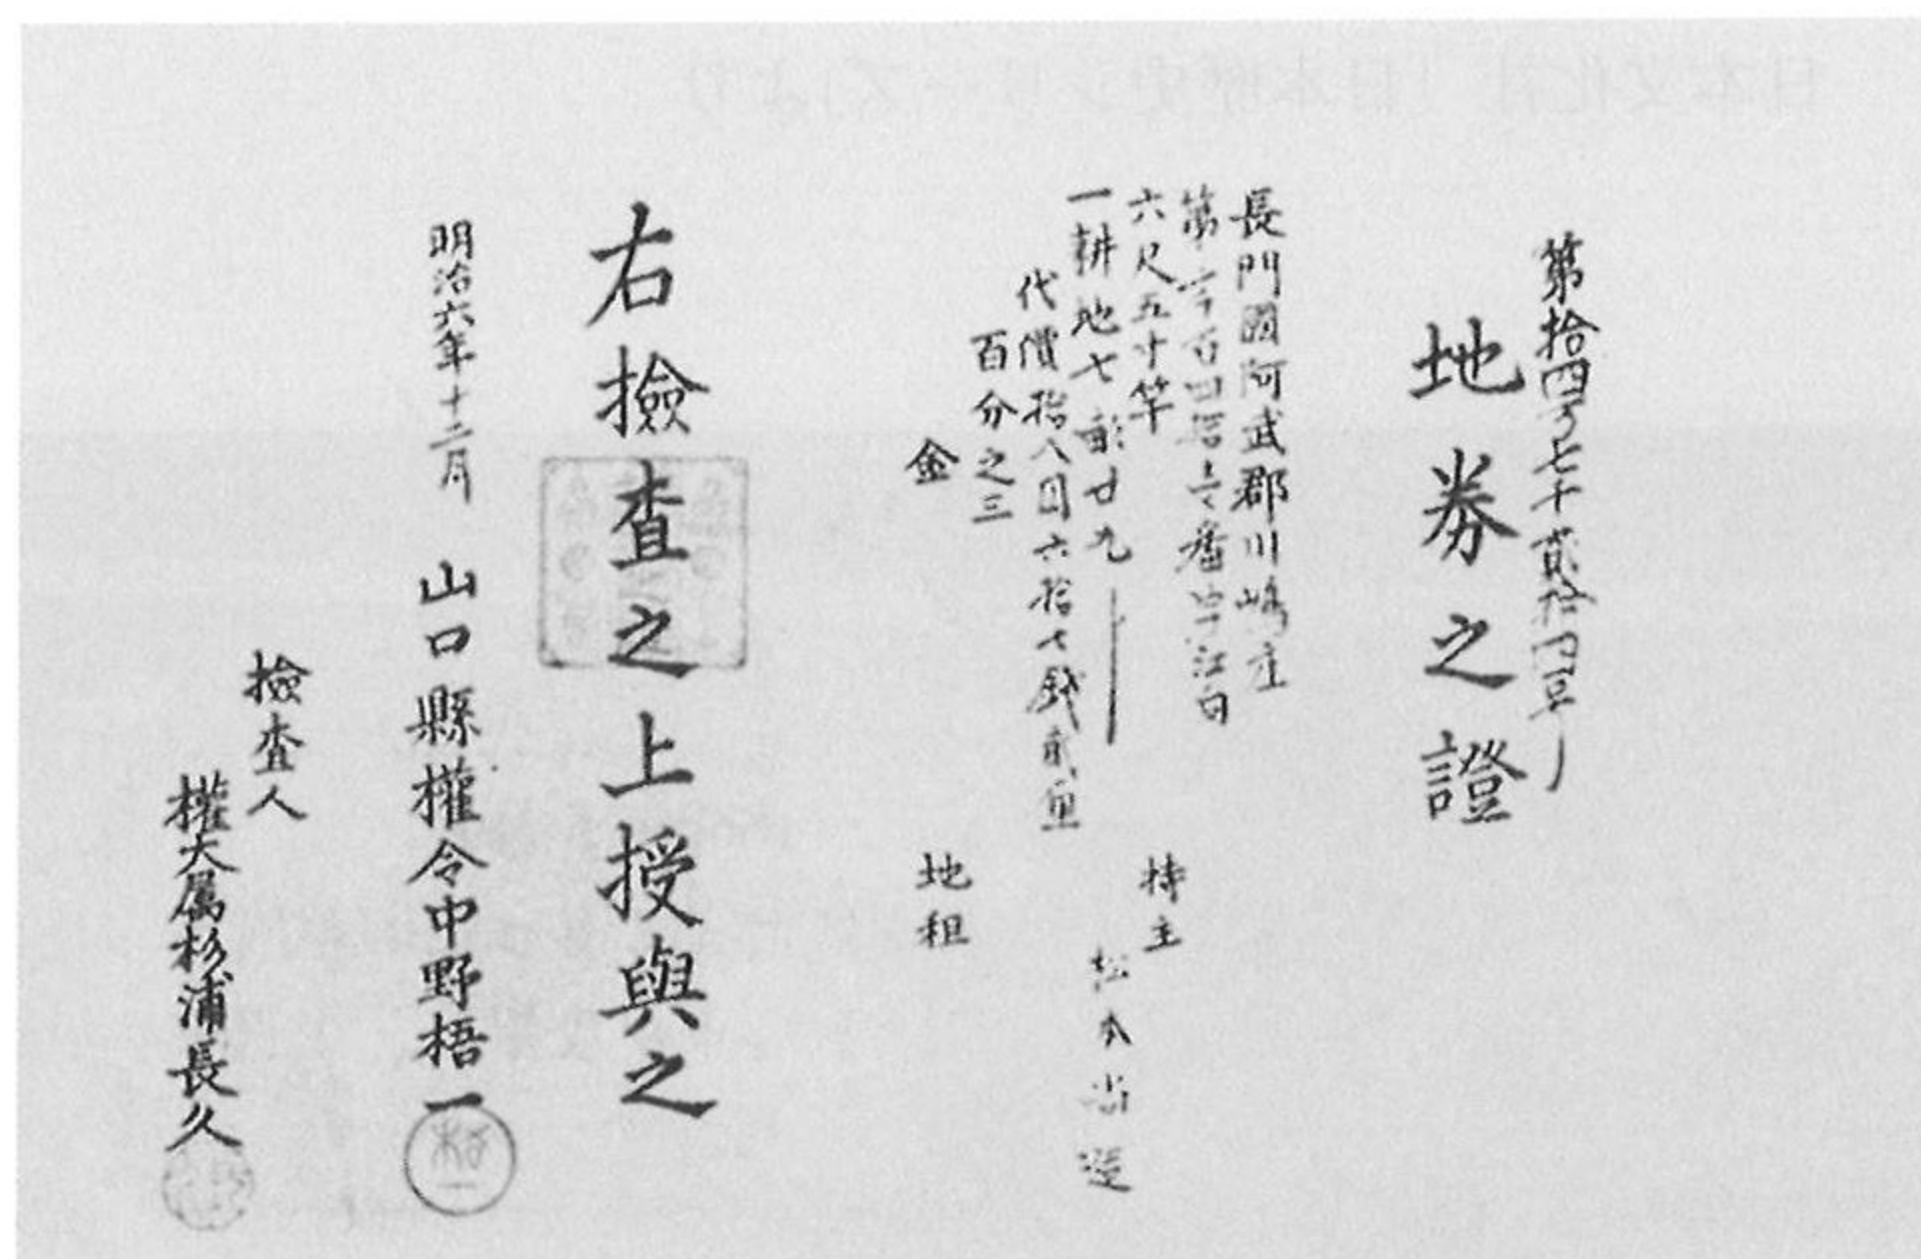 第拾四万七十貳拾四号
地券之證
長門國阿武郡川嶋庄
第 百四拾 番字江向
六尺五寸竿
一耕地七畝廿九
持主
松本
代價拾八円六拾七銭貳厘
百分之三
金
地租
右撿査之上授與之
明治六年十二月 山口縣權令中野梧一
撿査人
權大属杉浦長久